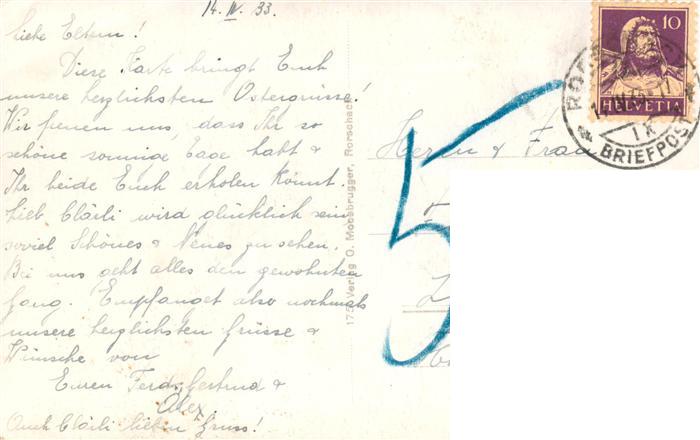 14. IV. 33.
Liebe Eltern!
Diese Karte bringt Euch
unsere herzlichsten Ostergrüsse!
Wir freuen uns, dass Ihr so
schöne sonnige Tage habt &
Ihr beide Euch erholen könnt.
Lieb Cläili wird glücklich sein
soviel Schönes & Neues zu sehen.
Bei uns geht alles den gewohnten
Gang. Empfanget also nochmals
unsere herzlichsten Grüsse &
Wünsche von
Euren Ferdy, Gertrud &
Alex.
Auch Cläili lieben Gruss!
175 Verlag O. Moosbrugger, Rorschach
Herrn & Frau
5
10
HELVETIA
BRIEFPOST